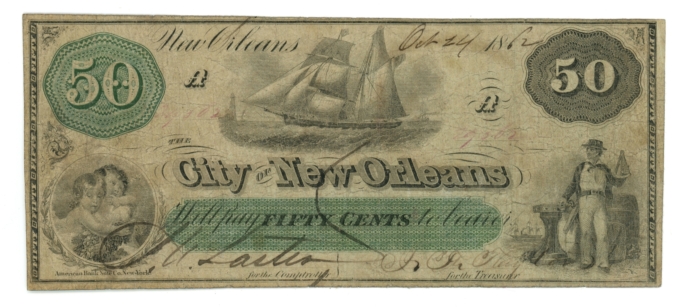 New Orleans Oct 24 1862
50 A 50
A
THE
City OF New Orleans
Will pay FIFTY CENTS to bearer
American Bank Note Co. New-York.
for the Comptroller
for the Treasurer